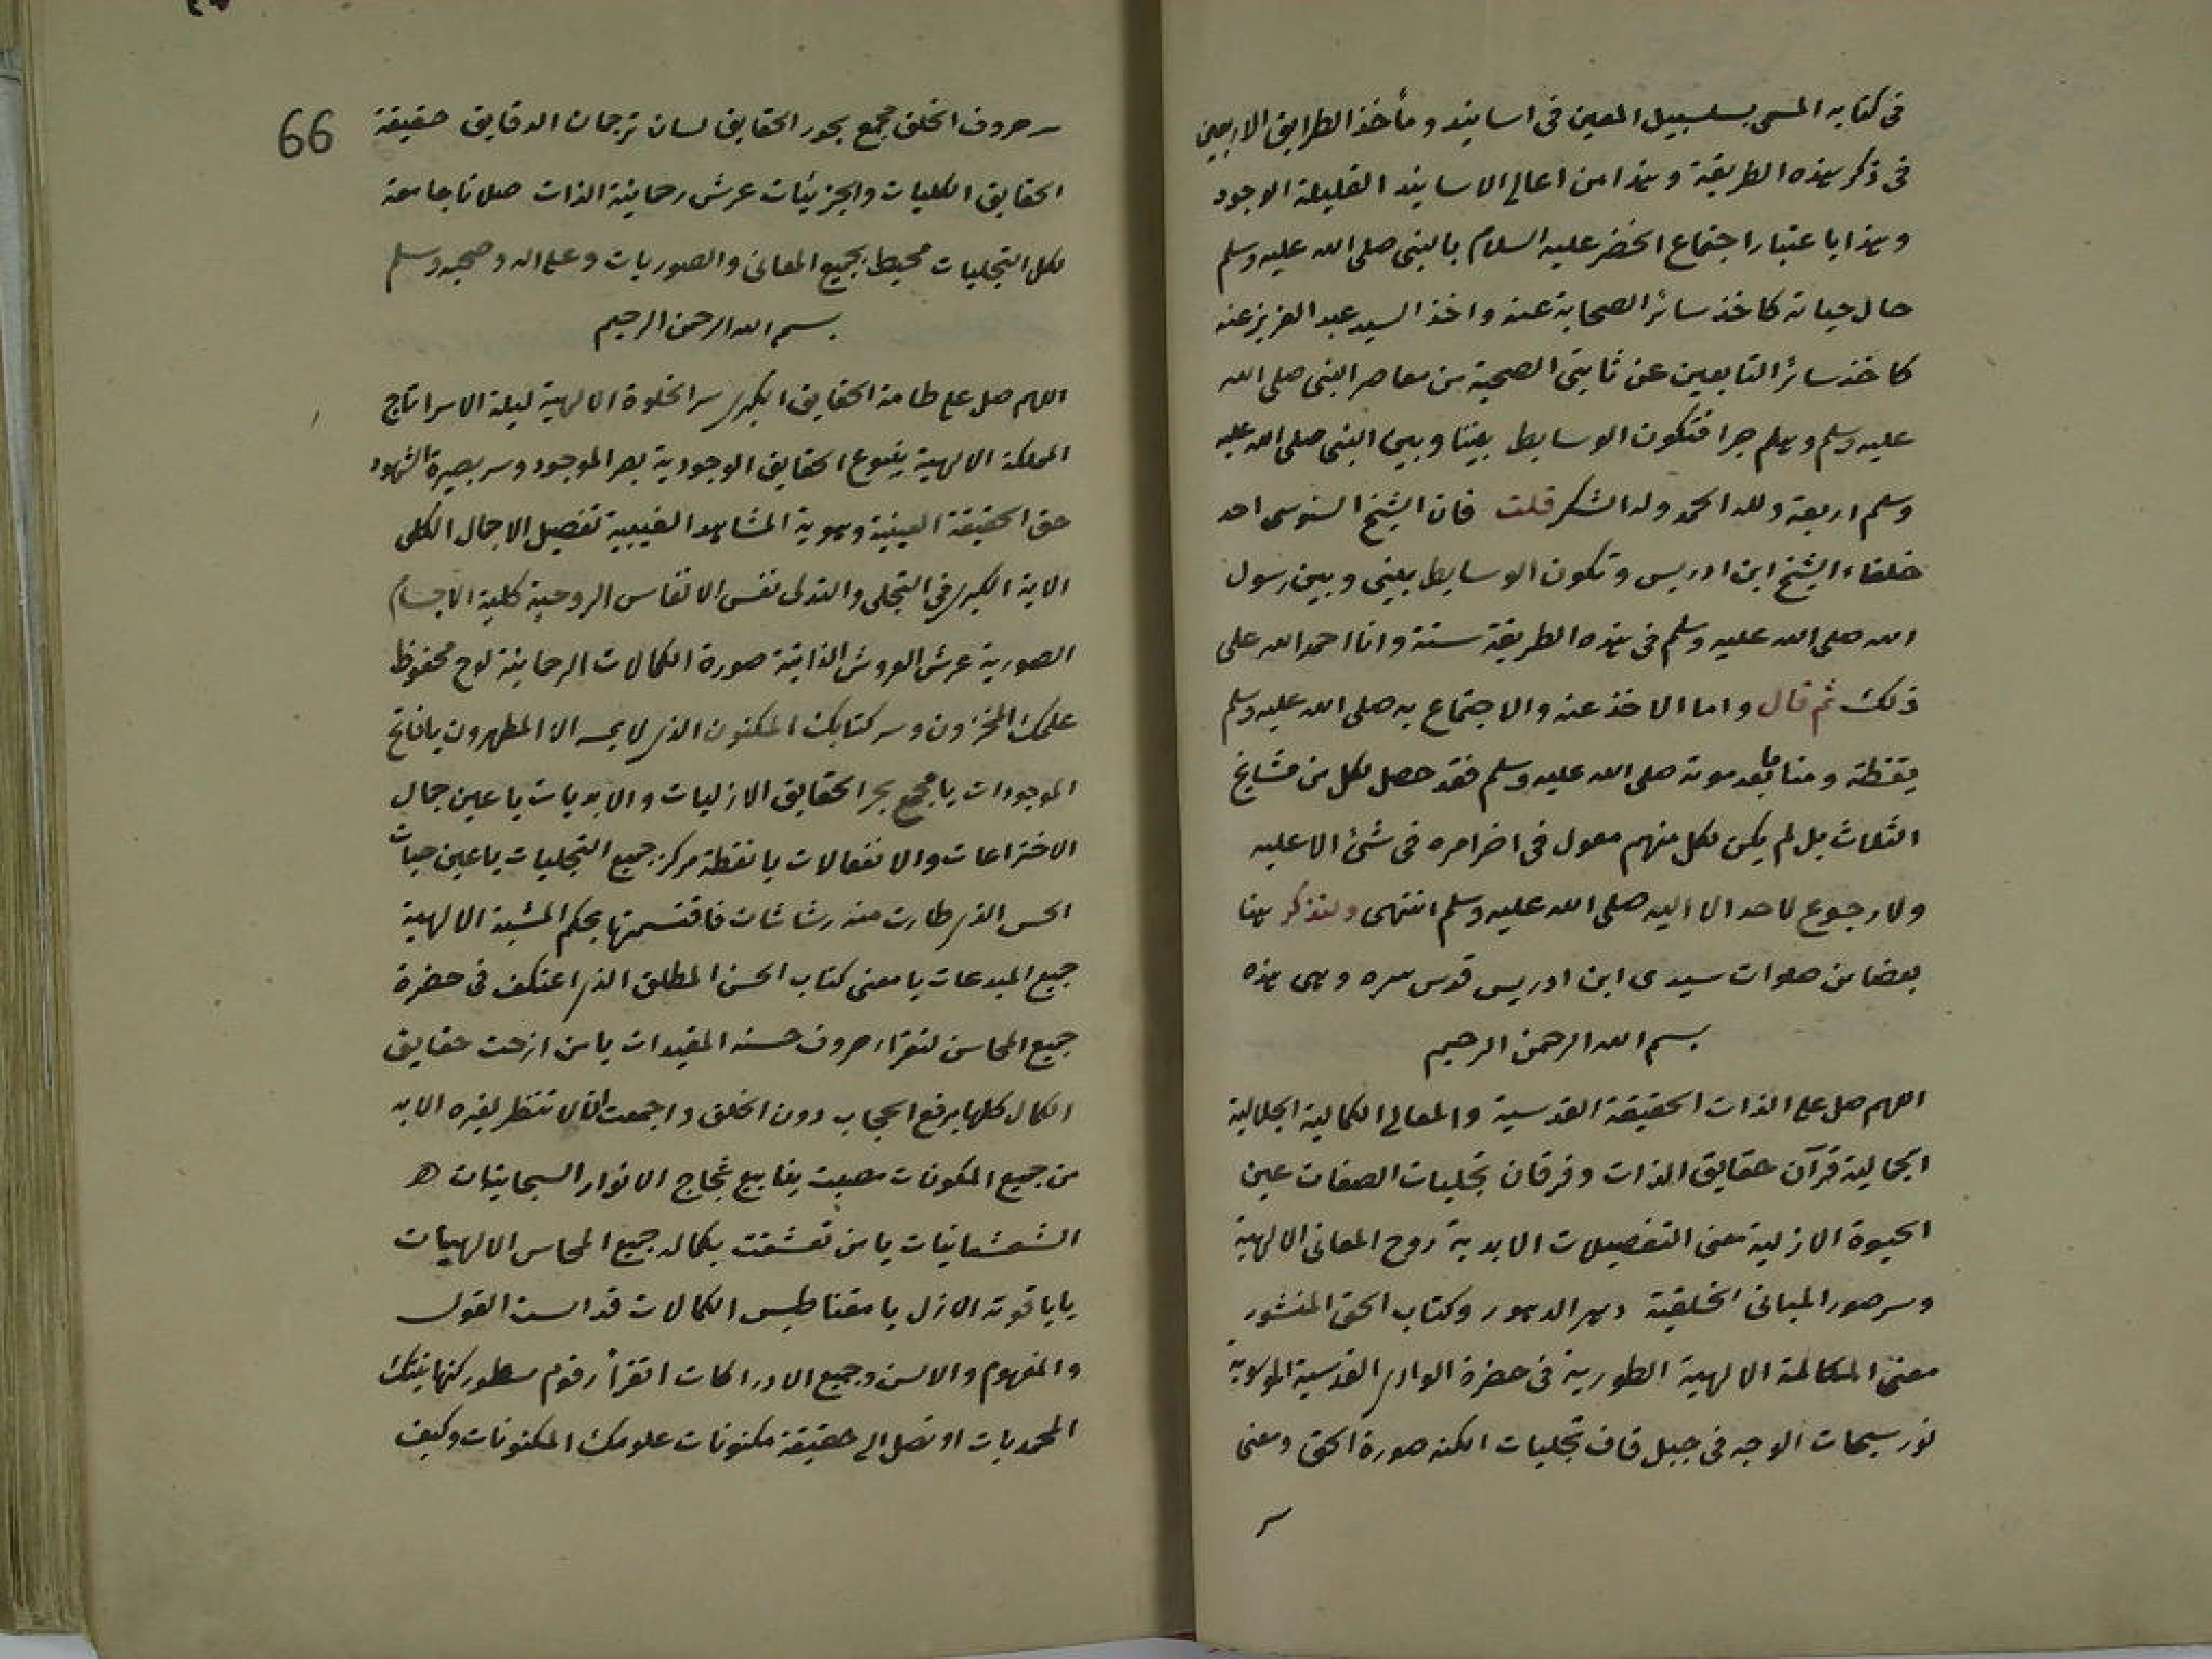 فى كتابه المسمى بسلسبيل المعين فى اسانيد ومأخذ الطرايق الاربعين
فى ذكر هذه الطريقة وهذا من اعالى الاسانيد القليلة الوجود
وهذا باعتبار اجتماع الخضر عليه السلام بالنبى صلى الله عليه وسلم
حال حياته كاخذ سائر الصحابة عنه واخذ السيد عبد العزيز عنه
كاخذ سائر التابعين عن ثابتى الصحبة من معاصر النبى صلى الله
عليه وسلم وهلم جرا فتكون الوسايط بيننا وبين النبى صلى الله عليه
وسلم اربعة ولله الحمد وله الشكر قلت فان الشيخ السنوسى احد
خلفاء الشيخ ابن ادريس وتكون الوسايط بينى وبين رسول
الله صلى الله عليه وسلم فى هذه الطريقة ستة وانا احمد الله على
ذلك ثم قال واما الاخذ عنه والاجتماع به صلى الله عليه وسلم
يقظة ومناما بعد موته صلى الله عليه وسلم فقد حصل لكل من مشايخ
الثلاث بل لم يكن لكل منهم معول فى اخر امره فى شئ الا عليه
ولا رجوع لاحد الا اليه صلى الله عليه وسلم انتهى ولنذكر هنا
بعضا من صلوات سيدى ابن ادريس قدس سره وهى هذه
بسم الله الرحمن الرحيم
اللهم صل على الذات الحقيقة القدسية والمعالى الكمالية الجلالية
الجمالية قرآن حقايق الذات وفرقان تجليات الصفات عين
الحيوة الازلية معنى التفصيلات الابدية روح المعانى الالهية
وسر صور المبانى الخلقية دهر الدهور وكتاب الحق المنشور
معنى المكالمة الالهية الطورية فى حضرة الوادى القدسية المولوية
نور سبحات الوجه فى جبل قاف تجليات الكنه صورة الحق ومعنى
66
حروف الخلق مجمع بحور الحقايق لسان ترجمان الدقايق حقيقة
الحقايق الكليات والجزئيات عرش رحمانية الذات صلاة جامعة
لكل التجليات محيط بجميع المعانى والصوريات وعلى اله وصحبه وسلم
بسم الله الرحمن الرحيم
اللهم صل على طامة الحقايق الكبرى سر الخلوة الالهية ليلة الاسرا تاج
المملكة الالهية ينبوع الحقايق الوجودية بصر الموجود وسر بصيرة الشهود
حق الحقيقة العينية وهوية المشاهد الغيبية تفصيل الاجمال الكلى
الاية الكبرى فى التجلى والتدلى نفس الانفاس الروحية كلية الاجسام
الصورية عرش العروش الذاتية صورة الكمالات الرحمانية لوح محفوظ
علمك المخزون وسر كتابك المكنون الذى لا يمسه الا المطهرون يا فاتح
الموجودات يا مجمع بحر الحقايق الازليات والابديات يا عين جمال
الاختراعات والانفعالات يا نقطة مركز جميع التجليات يا عين حيات
الحسن الذى طارت منه رشاشات فاقتسمتها بحكم المشية الالهية
جميع المبدعات يا معنى كتاب الحسن المطلق الذى اعتكف فى حضرة
جميع المحاسن لتقراء حروف حسنه المقيدات يا من ارخت حقايق
الكمال كلها برقع الحجاب دون الخلق واجمعت ان لا تنظر لغيره الا به
من جميع المكونات مصب ينابيع ثجاج الانوار السبحانيات ه
الشعشعانيات يا من تعشقت بكماله جميع المحاسن الالهيات
يا ياقوتة الازل يا مغناطيس الكمالات قد ايست العقول
والفهوم والالسن وجميع الادراكات ان تقرأ رقوم سطور كنهانيتك
المحمديات او تصل الى حقيقة مكنونات علومك المكنونات وكيف